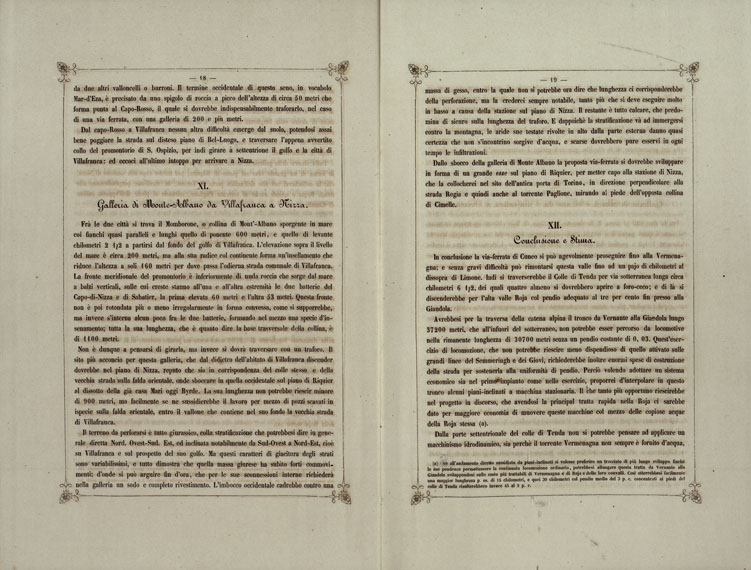 — 18 —
da due altri valloncelli o burroni. Il termine occidentale di questo seno, in vocabolo
Mar-d'Eza, è precisato da uno spigolo di roccia a picco dell'altezza di circa 50 metri che
forma punta al Capo-Rosso, il quale si dovrebbe indispensabilmente traforarlo, nel caso
di una via ferrata, con una galleria di 200 e più metri.
Dal capo-Rosso a Villafranca nessun altra difficoltà emerge dal suolo, potendosi assai
bene poggiare la strada sul disteso piano di Bel-Luogo, e traversare l'appena avvertito
collo del promontorio di S. Ospizio, per indi girare a settentrione il golfo e la città di
Villafranca: ed eccoci all'ultimo intoppo per arrivare a Nizza.
XI.
Galleria di Monte-Albano da Villafranca a Nizza.
Frà le due città si trova il Momborone, o collina di Mont'-Albano sporgente in mare
coi fianchi quasi paralleli e lunghi quello di ponente 600 metri, e quello di levante
chilometri 2 1/2 a partirsi dal fondo del golfo di Villafranca. L'elevazione sopra il livello
del mare è circa 200 metri, ma alla sua radice col continente forma un'insellamento che
riduce l'altezza a soli 160 metri per dove passa l'odierna strada comunale di Villafranca.
La fronte meridionale del promontorio è inferiormente di nuda roccia che sorge dal mare
a balzi verticali, sulle cui creste stanno all'una e all'altra estremità le due batterie del
Capo-di-Nizza e di Sabatier, la prima elevata 60 metri e l'altra 53 metri. Questa fronte
non è poi rotondata più o meno irregolarmente in forma convessa, come si supporrebbe,
ma invece s'interna alcun poco fra le due batterie, formando nel mezzo una specie d'in-
senamento; tutta la sua lunghezza, che è quanto dire la base trasversale della collina, è
di 1100 metri.
Non è dunque a pensarsi di girarla, ma invece si dovrà traversare con un traforo. Il
sito più acconcio per questa galleria, che dal didietro dell'abitato di Villafranca discender
dovrebbe nel piano di Nizza, reputo che sia in corrispondenza del colle stesso e della
vecchia strada sulla falda orientale, onde sboccare in quella occidentale sul piano di Riquier
al dissotto della già casa Mari oggi Byrde. La sua lunghezza non potrebbe riescir minore
di 900 metri, ma facilmente se ne sussidierebbe il lavoro per mezzo di pozzi scavati in
ispecie sulla falda orientale, entro il vallone che contiene nel suo fondo la vecchia strada
di Villafranca.
Il terreno da perforarsi è tutto giurassico, colla stratificazione che potrebbesi dire in gene-
rale diretta Nord. Ovest-Sud. Est, ed inclinata notabilmente da Sud-Ovest a Nord-Est, cioè
su Villafranca e sul prospetto del suo golfo. Ma questi caratteri di giacitura degli strati
sono variabilissimi, e tutto dimostra che quella massa giurese ha subito forti commovi-
menti; d'onde si può arguire fin d'ora, che per le sue sconnessioni interne richiederà
nella galleria un sodo e completo rivestimento. L'imbocco occidentale cadrebbe contro una
— 19 —
massa di gesso, entro la quale non si potrebbe ora dire che lunghezza ci corrisponderebbe
della perforazione, ma la crederei sempre notabile, tanto più che si deve eseguire molto
in basso a causa della stazione sul piano di Nizza. Il restante è tutto calcare, che predo-
mina di sicuro sulla lunghezza del traforo. E dappoichè la stratificazione và ad immergersi
contro la montagna, le aride sue testate rivolte in alto dalla parte esterna danno quasi
certezza che non s'incontrino sorgive d'acqua, e scarse dovrebbero pure esservi in ogni
tempo le infiltrazioni.
Dallo sbocco della galleria di Monte Albano la proposta via-ferrata si dovrebbe sviluppare
in forma di un grande esse sul piano di Riquier, per metter capo alla stazione di Nizza,
che la collocherei nel sito dell'antica porta di Torino, in direzione perpendicolare alla
strada Regia e quindi anche al torrente Paglione, mirando al piede dell'opposta collina
di Cimelle.
XII.
Conclusione e Stima.
In conclusione la via-ferrata di Cuneo si può agevolmente proseguire fino alla Vermena-
gna; e senza gravi difficoltà può rimontarsi questa valle fino ad un pajo di chilometri al
dissopra di Limone. Indi si traverserebbe il Colle di Tenda per via sotterranea lunga circa
chilometri 6 1/2, dei quali quattro almeno si dovrebbero aprire a foro-ceco; e di là si
discenderebbe per l'alta valle Roja col pendio adequato al tre per cento fin presso alla
Giandola.
Avrebbesi per la traversa della catena alpina il tronco da Vernante alla Giandola lungo
37200 metri, che all'infuori del sotterraneo, non potrebbe esser percorso da locomotive
nella rimanente lunghezza di 30700 metri senza un pendio costante di 0, 03. Quest'eser-
cizio di locomozione, che non potrebbe riescire meno dispendioso di quello attivato sulle
grandi linee del Semmeringh e dei Giovi, richiederebbe inoltre enormi spese di costruzione
della strada per sostenerla alla uniformità di pendio. Perciò volendo adottare un sistema
economico sia nel primo impianto come nello esercizio, proporrei d'interpolare in questo
tronco alcuni piani-inclinati a macchina stazionaria. Il che tanto più opportuno riescirebbe
nel progetto in discorso, che avendosi la principal tratta rapida nella Roja ci sarebbe
dato per maggiore economia di muovere queste macchine col mezzo delle copiose acque
della Roja stessa (a).
Dalla parte settentrionale del colle di Tenda non si potrebbe pensare ad applicare un
macchinismo idrodinamico, sia perchè il torrente Vermenagna non sempre è fornito d'acqua,
(a) Se all'andamento diretto ausidiato da piani-inclinati si volesse preferire un tracciato di più lungo sviluppo finchè
le sue pendenze permettessero la continuata locomozione ordinaria, potrebbesi allungare questa tratta da Vernante alla
Giandola sviluppandosi sulle coste più trattabili di Vermenagna e di Roja e delle loro convalli. Così otterrebbesi facilmente
una maggior lunghezza p. es. di 15 chilometri, e quei 30 chilometri col pendio medio del 3 p. c. concentrati ai piedi del
colle di Tenda risulterebbero invece 45 al 2 p. c.